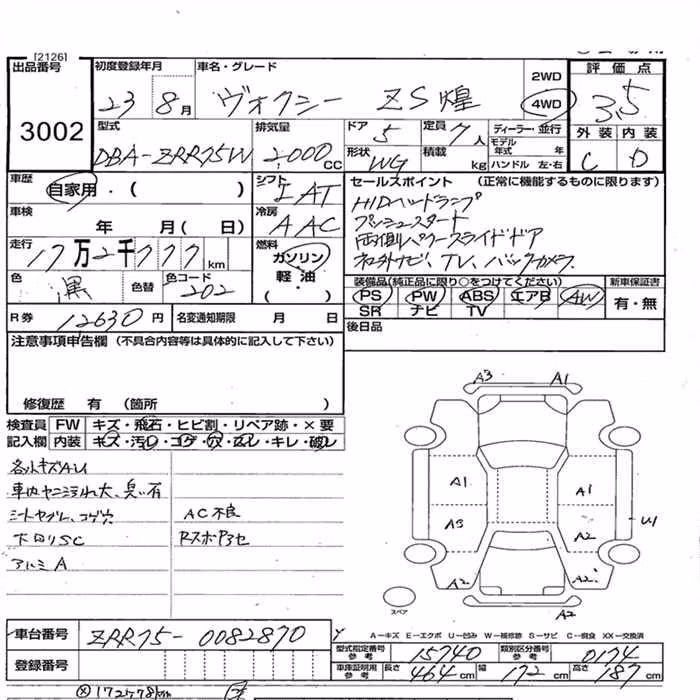 [2126]
出品番号 初度登録年月 車名・グレード 2WD 評価点
3002 23 8月 ヴォクシー ZS煌 4WD 3.5
型式 排気量 ドア 5 定員 7人 ディーラー・並行 外装 内装
DBA-ZRR75W 2000CC 形状 WG 積載 kg モデル年式 年 ハンドル 左・右 C D
車歴 自家用・( ) シフト IAT セールスポイント (正常に機能するものに限ります)
車検 年 月( 日) 冷房 AAC HIDヘッドランプ
プッシュスタート
走行 17万2千777km 燃料 ガソリン・軽油・( ) 両側パワースライドドア
社外ナビ、TV、バックカメラ
色 黒 色替 色コード 202 装備品(純正品に限り○をつけてください) 新車保証書
PS PW ABS エアB AW 有・無
SR ナビ TV
R券 12630円 名変通知期限 月 日 後日品
注意事項申告欄 (不具合内容等は具体的に記入して下さい)
修復歴 有 (箇所 )
検査員 FW キズ・飛石・ヒビ割・リペア跡・×要
記入欄 内装 キズ・汚レ・コゲ・穴・ズレ・キレ・破レ
各小キズA.U
車内ヤニ汚れ大、臭い有
シートヤブレ、コゲ穴 AC不良
下回りSC RスポPアセ
アルミA
A3 A1
A1 A1
A3 A2 U1
A2 A2
A2
スペア
A-キズ E-エクボ U-凹み W-補修跡 S-サビ C-腐食 XX-交換済
車台番号 ZRR75-0082870 型式指定番号 参考 15740 類別区分番号 参考 0174
登録番号 車庫証明用 参考 長さ 464cm 幅 172cm 高さ 187cm